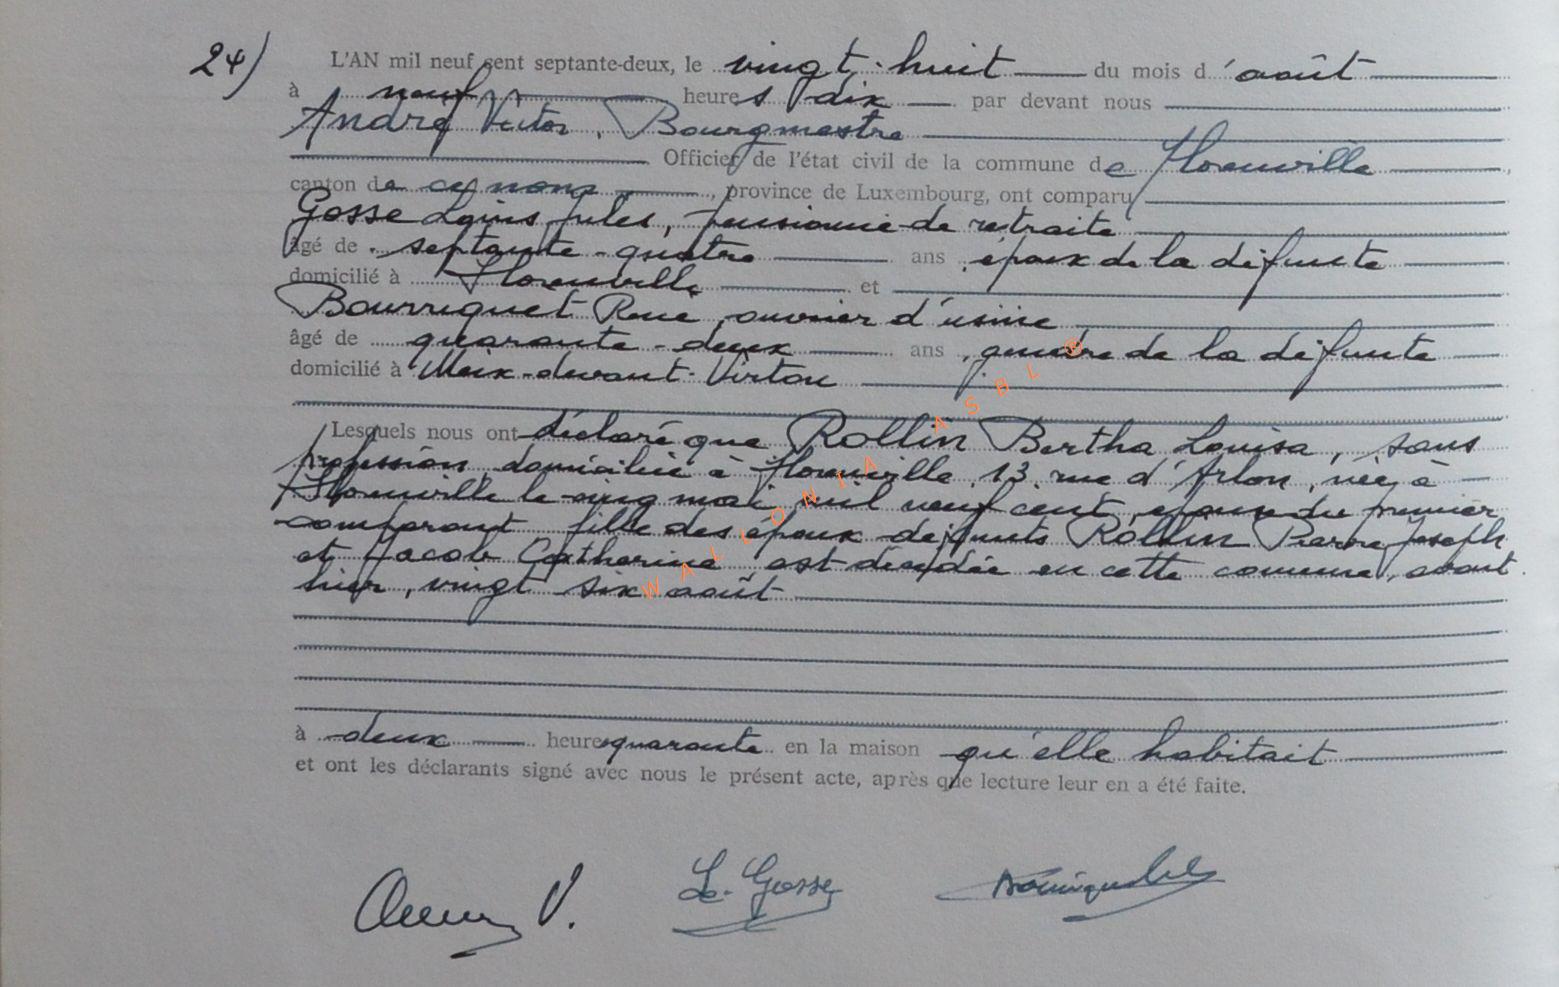 24) L'AN mil neuf cent septante-deux, le vingt-huit du mois d'août
à neuf heures dix par devant nous
André Victor, Bourgmestre
Officier de l'état civil de la commune de Florenville
canton de ce nom, province de Luxembourg, ont comparu
Gosse Louis Jules, pensionné de retraite
âgé de septante-quatre ans, époux de la défunte
domicilié à Florenville et
Bourriquet René, ouvrier d'usine
âgé de quarante-deux ans, gendre de la défunte
domicilié à Meix-devant-Virton
Lesquels nous ont déclaré que Rollin Bertha Louisa, sans
profession, domiciliée à Florenville, 13, rue d'Arlon, née à
Florenville le cinq mai mil neuf cent, épouse du premier
comparant, fille des époux défunts Rollin Pierre Joseph
et Jacob Catherine est décédée en cette commune, avant
hier, vingt six août
à deux heures quarante en la maison qu'elle habitait
et ont les déclarants signé avec nous le présent acte, après que lecture leur en a été faite.
V. L. Gosse
WALLONIA ASBL ®